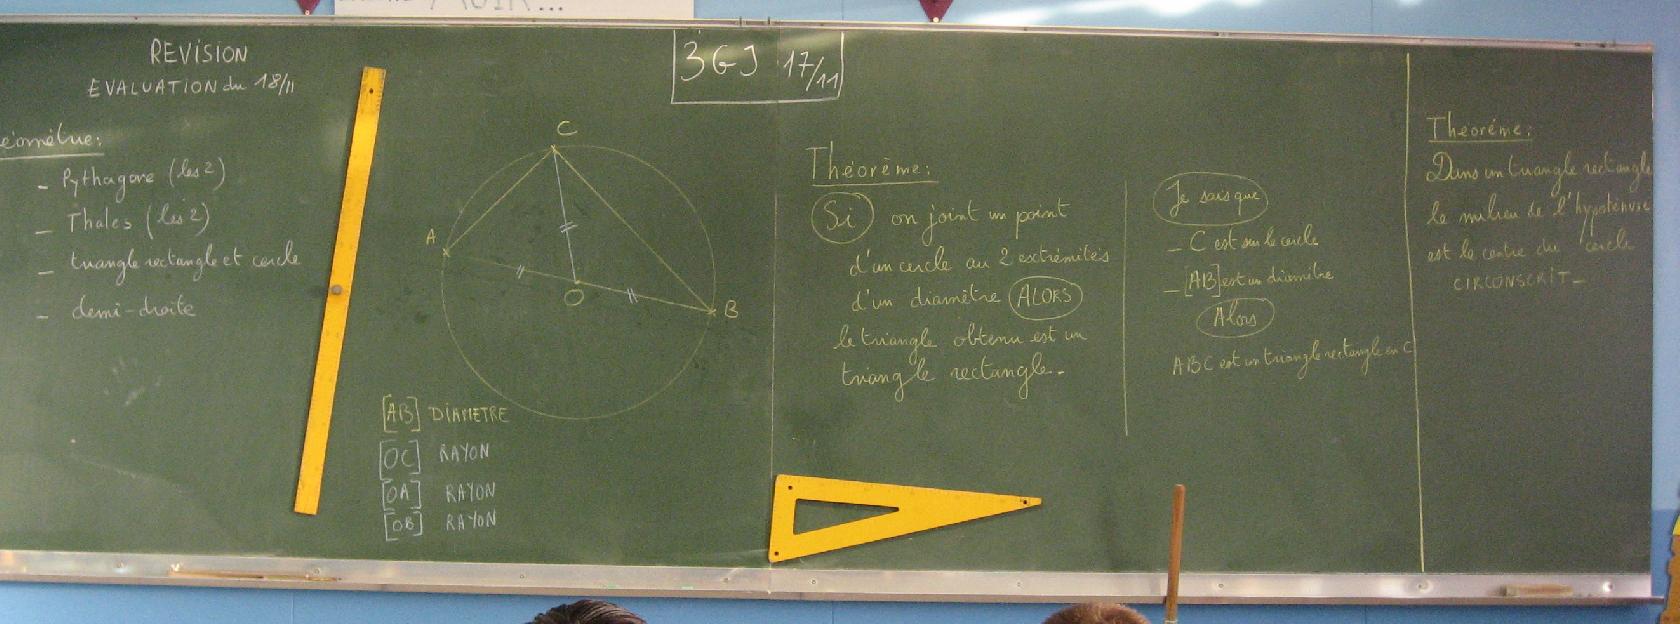 REVISION
EVALUATION du 18/11
éométrie:
- Pythagore (les 2)
- Thales (les 2)
- triangle rectangle et cercle
- demi-droite
C
A
O
B
[AB] DIAMETRE
[OC] RAYON
[OA] RAYON
[OB] RAYON
3GJ 17/11
Théorème:
Si on joint un point
d'un cercle au 2 extrémités
d'un diamètre ALORS
le triangle obtenu est un
triangle rectangle.
Je sais que
- C est sur le cercle
- [AB] est un diamètre
Alors
ABC est un triangle rectangle en C
Theorème:
Dans un triangle rectangle
le milieu de l'hypoténuse
est le centre du cercle
CIRCONSCRIT-